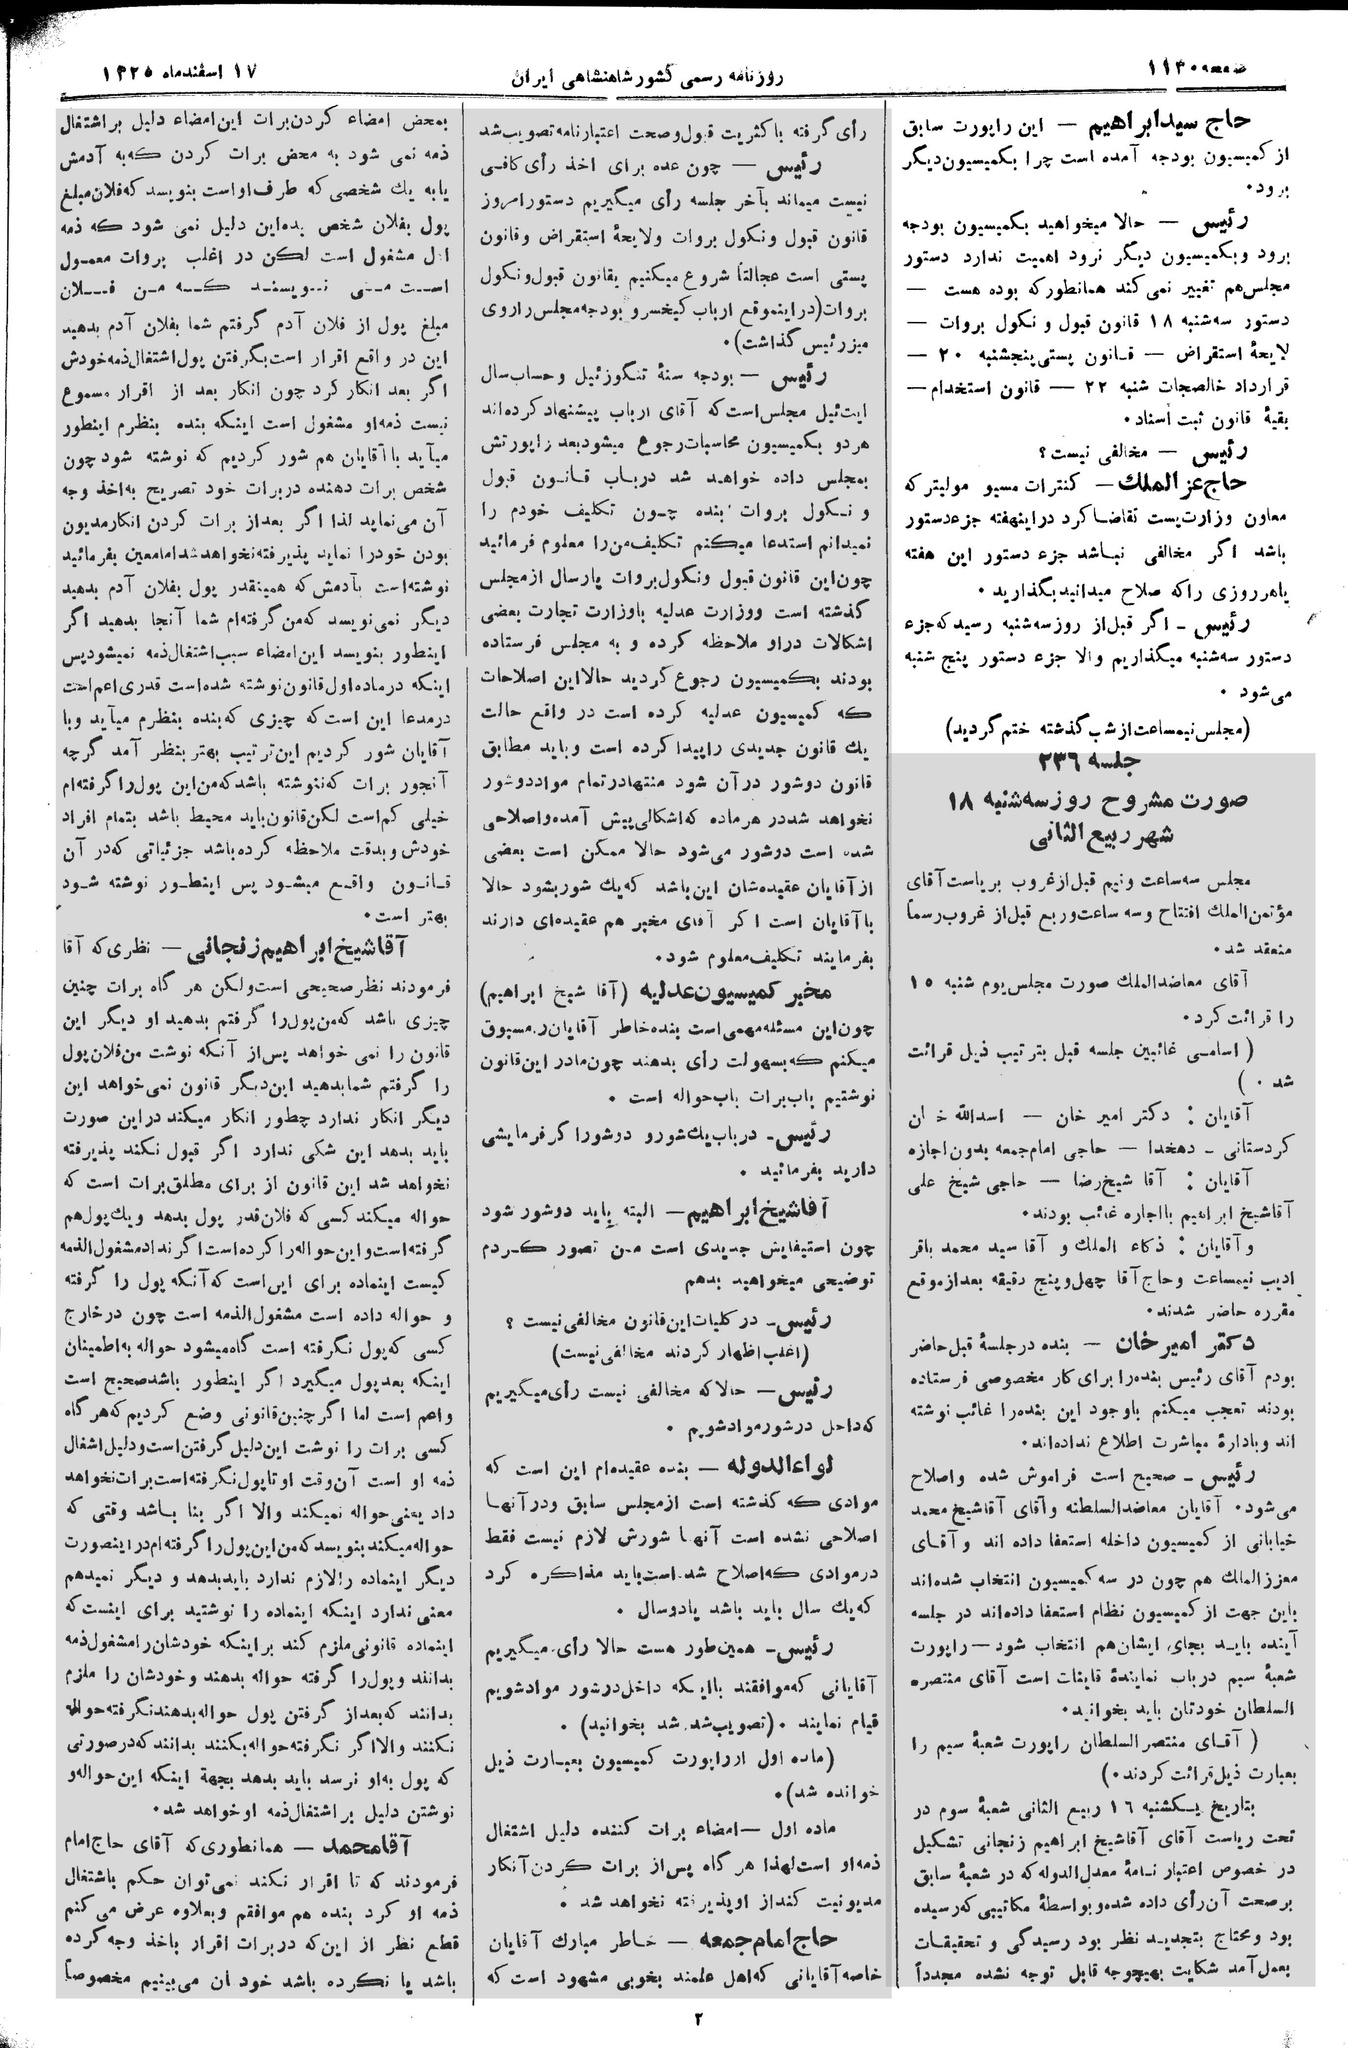 صفحه ۱۱۳۰
روزنامه رسمی کشور شاهنشاهی ایران
۱۷ اسفندماه ۱۳۲۵
حاج سید ابراهیم — این راپورت سابق
از کمیسیون بودجه آمده است چرا بکمیسیون دیگر
برود.
رئیس — حالا میخواهید بکمیسیون بودجه
برود و بکمیسیون دیگر نرود اهمیت ندارد دستور
مجلس هم تغییر نمی کند همانطور که بوده هست —
دستور سه شنبه ۱۸ قانون قبول و نکول بروات —
لایحهٔ استقراض — قانون پستی پنجشنبه ۲۰ —
قرارداد خالصجات شنبه ۲۲ — قانون استخدام —
بقیهٔ قانون ثبت اسناد.
رئیس — مخالفی نیست؟
حاج عز الملک — کنترات مسیو مولیتر که
معاون وزارت پست تقاضا کرد در اینهفته جزء دستور
باشد اگر مخالفی نباشد جزء دستور این هفته
یا هر روزی را که صلاح میدانید بگذارید.
رئیس ـ اگر قبل از روز سه شنبه رسید که جزء
دستور سه شنبه میگذاریم والا جزء دستور پنج شنبه
می شود.
(مجلس نیمساعت از شب گذشته ختم گردید)
جلسه ۲۳۶
صورت مشروح روز سه شنبه ۱۸
شهر ربیع الثانی
مجلس سه ساعت و نیم قبل از غروب بریاست آقای
مؤتمن الملک افتتاح و سه ساعت و ربع قبل از غروب رسماً
منعقد شد.
آقای معاضد الملک صورت مجلس یوم شنبه ۱۵
را قرائت کرد.
(اسامی غائبین جلسه قبل بترتیب ذیل قرائت
شد.)
آقایان: دکتر امیر خان — اسدالله خان
کردستانی ـ دهخدا — حاجی امام جمعه بدون اجازه
آقایان: آقا شیخ رضا — حاجی شیخ علی
آقا شیخ ابراهیم با اجازه غائب بودند.
و آقایان: ذکاء الملک و آقا سید محمد باقر
ادیب نیمساعت و حاج آقا چهل و پنج دقیقه بعد از موقع
مقرره حاضر شدند.
دکتر امیر خان — بنده در جلسهٔ قبل حاضر
بودم آقای رئیس بنده را برای کار مخصوصی فرستاده
بودند تعجب میکنم با وجود این بنده را غائب نوشته
اند و بادارهٔ مباشرت اطلاع نداده اند.
رئیس ـ صحیح است فراموش شده و اصلاح
می شود. آقایان معاضد السلطنه و آقای آقا شیخ محمد
خیابانی از کمیسیون داخله استعفا داده اند و آقای
معزز الملک هم چون در سه کمیسیون انتخاب شده اند
باین جهت از کمیسیون نظام استعفا داده اند در جلسه
آینده باید بجای ایشان هم انتخاب شود — راپورت
شعبهٔ سیم در باب نمایندهٔ قاینات است آقای منتصر
السلطان خودتان باید بخوانید.
(آقای منتصر السلطان راپورت شعبهٔ سیم را
بعبارت ذیل قرائت کردند.)
بتاریخ یکشنبه ۱۶ ربیع الثانی شعبهٔ سوم در
تحت ریاست آقای آقا شیخ ابراهیم زنجانی تشکیل
در خصوص اعتبار نامهٔ معدل الدوله که در شعبهٔ سابق
بر صحت آن رأی داده شده و بواسطهٔ مکاتیبی که رسیده
بود و محتاج بتجدید نظر بود رسیدگی و تحقیقات
بعمل آمد شکایت بهیچوجه قابل توجه نشده مجدداً
رأی گرفته با کثریت قبول و صحت اعتبار نامه تصویب شد
رئیس — چون عده برای اخذ رأی کافی
نیست میماند بآخر جلسه رأی میگیریم دستور امروز
قانون قبول و نکول بروات و لایحهٔ استقراض و قانون
پستی است عجالتاً شروع میکنیم بقانون قبول و نکول
بروات (در اینموقع ارباب کیخسرو بودجه مجلس را روی
میز رئیس گذاشت).
رئیس — بودجه سنهٔ تنگوزئیل و حساب سال
ایت ئیل مجلس است که آقای ارباب پیشنهاد کرده اند
هر دو بکمیسیون محاسبات رجوع میشود بعد راپورتش
بمجلس داده خواهد شد در باب قانون قبول
و نکول بروات بنده چون تکلیف خودم را
نمیدانم استدعا میکنم تکلیف من را معلوم فرمائید
چون این قانون قبول و نکول بروات پارسال از مجلس
گذشته است و وزارت عدلیه با وزارت تجارت بعضی
اشکالات در او ملاحظه کرده و به مجلس فرستاده
بودند بکمیسیون رجوع گردید حالا این اصلاحات
که کمیسیون عدلیه کرده است در واقع حالت
یک قانون جدیدی را پیدا کرده است و باید مطابق
قانون دو شور در آن شود منتها در تمام مواد دو شور
نخواهد شد در هر ماده که اشکالی پیش آمده و اصلاحی
شده است دو شور می شود حالا ممکن است بعضی
از آقایان عقیده شان این باشد که یک شور بشود حالا
با آقایان است اگر آقای مخبر هم عقیده ای دارند
بفرمایند تکلیف معلوم شود.
مخبر کمیسیون عدلیه (آقا شیخ ابراهیم)
چون این مسئله مهمی است بنده خاطر آقایان را مسبوق
میکنم که بسهولت رأی بدهند چون ما در این قانون
نوشتیم باب برات باب حواله است.
رئیس ـ در باب یک شور و دو شور اگر فرمایشی
دارید بفرمائید.
آقا شیخ ابراهیم — البته باید دو شور شود
چون استیفایش جدیدی است من تصور کردم
توضیحی میخواهید بدهم
رئیس ـ در کلیات این قانون مخالفی نیست؟
(اغلب اظهار کردند مخالفی نیست)
رئیس — حالا که مخالفی نیست رأی میگیریم
که داخل در شور مواد شویم.
لواء الدوله — بنده عقیده ام این است که
موادی که گذشته است از مجلس سابق و در آنها
اصلاحی نشده است آنها شورش لازم نیست فقط
در موادی که اصلاح شده است باید مذاکره کرد
که یک سال باید باشد یا دو سال.
رئیس ـ همین طور هست حالا رأی میگیریم
آقایانی که موافقند با اینکه داخل در شور مواد شویم
قیام نمایند. (تصویب شد. شد بخوانید).
(ماده اول از راپورت کمیسیون بعبارت ذیل
خوانده شد).
ماده اول — امضاء برات کننده دلیل اشتغال
ذمه او است لهذا هر گاه پس از برات کردن آنکار
مدیونیت کند از او پذیرفته نخواهد شد.
حاج امام جمعه — خاطر مبارک آقایان
خاصه آقایانی که اهل علمند بخوبی مشهود است که
بمحض امضاء کردن برات این امضاء دلیل بر اشتغال
ذمه نمی شود به محض برات کردن که به آدمش
یا به یک شخصی که طرف او است بنویسد که فلان مبلغ
پول بفلان شخص بده این دلیل نمی شود که ذمه
اول مشغول است لکن در اغلب بروات معمول
است می نویسند که من فلان
مبلغ پول از فلان آدم گرفتم شما بفلان آدم بدهید
این در واقع اقرار است بگرفتن پول اشتغال ذمه خودش
اگر بعد انکار کرد چون انکار بعد از اقرار مسموع
نیست ذمه او مشغول است اینکه بنده بنظرم اینطور
میآید با آقایان هم شور کردیم که نوشته شود چون
شخص برات دهنده در برات خود تصریح به اخذ وجه
آن می نماید لذا اگر بعد از برات کردن انکار مدیون
بودن خود را نماید پذیرفته نخواهد شد اما معین بفرمائید
نوشته است بآدمش که همینقدر پول بفلان آدم بدهید
دیگر نمی نویسد که من گرفته ام شما آنجا بدهید اگر
اینطور بنویسد این امضاء سبب اشتغال ذمه نمیشود پس
اینکه در ماده اول قانون نوشته شده است قدری اعم است
در مدعا این است که چیزی که بنده بنظرم میآید و با
آقایان شور کردیم این ترتیب بهتر بنظر آمد گرچه
آنجور برات که ننوشته باشد که من این پول را گرفته ام
خیلی کم است لکن قانون باید محیط باشد بتمام افراد
خودش و بدقت ملاحظه کرده باشد جزئیاتی که در آن
قانون واقع میشود پس اینطور نوشته شود
بهتر است.
آقا شیخ ابراهیم زنجانی — نظری که آقا
فرمودند نظر صحیحی است ولکن هر گاه برات چنین
چیزی باشد که من پول را گرفتم بدهید او دیگر این
قانون را نمی خواهد پس از آنکه نوشت من فلان پول
را گرفتم شما بدهید این دیگر قانون نمی خواهد این
دیگر انکار ندارد چطور انکار میکند در این صورت
باید بدهد این شکی ندارد اگر قبول نکند پذیرفته
نخواهد شد این قانون از برای مطلق برات است که
حواله میکند کسی که فلان قدر پول بدهد و یک پول هم
گرفته است و این حواله را کرده است اگر نداد مشغول الذمه
کیست اینماده برای این است که آنکه پول را گرفته
و حواله داده است مشغول الذمه است چون در خارج
کسی که پول نگرفته است گاه میشود حواله به اطمینان
اینکه بعد پول میگیرد اگر اینطور باشد صحیح است
واعم است اما اگر چنین قانونی وضع کردیم که هر گاه
کسی برات را نوشت این دلیل گرفتن است و دلیل اشغال
ذمه او است آن وقت او تا پول نگرفته است برات نخواهد
داد یعنی حواله نمیکند والا اگر بنا باشد وقتی که
حواله میکند بنویسد که من این پول را گرفته ام در اینصورت
دیگر اینماده را لازم ندارد باید بدهد و دیگر نمیدهم
معنی ندارد اینکه اینماده را نوشتید برای اینست که
اینماده قانونی ملزم کند بر اینکه خودشان را مشغول ذمه
بدانند و پول را گرفته حواله بدهند و خودشان را ملزم
بدانند که بعد از گرفتن پول حواله بدهند نگرفته حواله
نکنند والا اگر نگرفته حواله بکنند بدانند که در صورتی
که پول به او نرسد باید بدهد بجهة اینکه این حواله و
نوشتن دلیل بر اشتغال ذمه او خواهد شد.
آقا محمد — همانطوری که آقای حاج امام
فرمودند که تا اقرار نکند نمی توان حکم باشتغال
ذمه او کرد بنده هم موافقم و بعلاوه عرض می کنم
قطع نظر از این که در برات اقرار باخذ وجه کرده
باشد یا نکرده باشد خودمان می بینیم مخصوصاً
۲